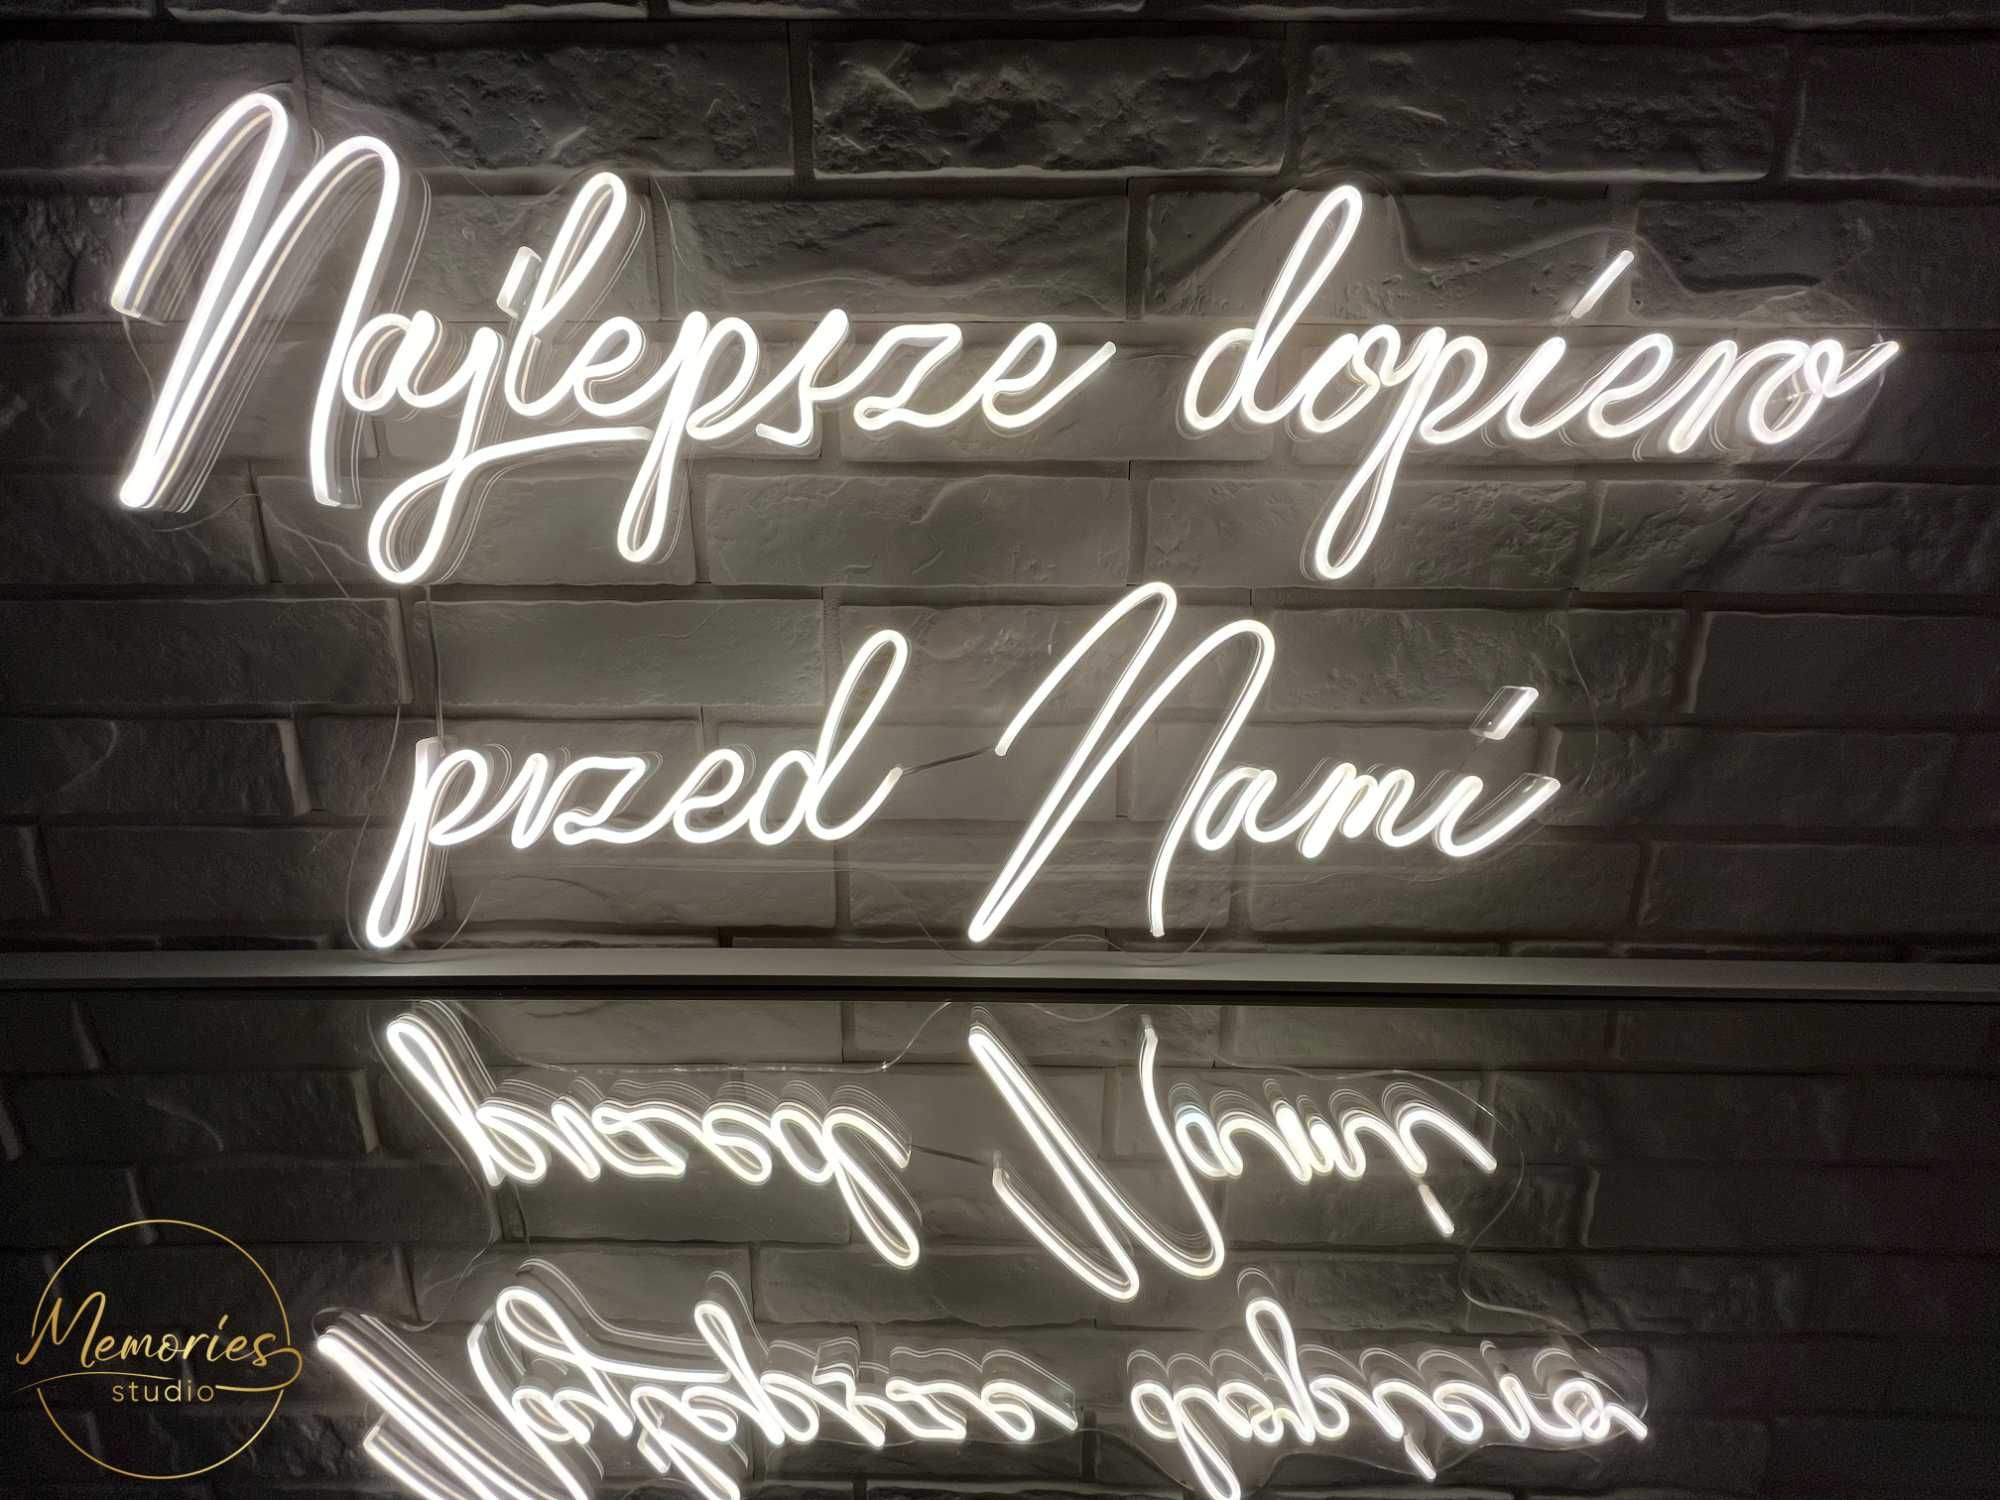 Najlepsze dopiero
przed Nami
Memories
studio